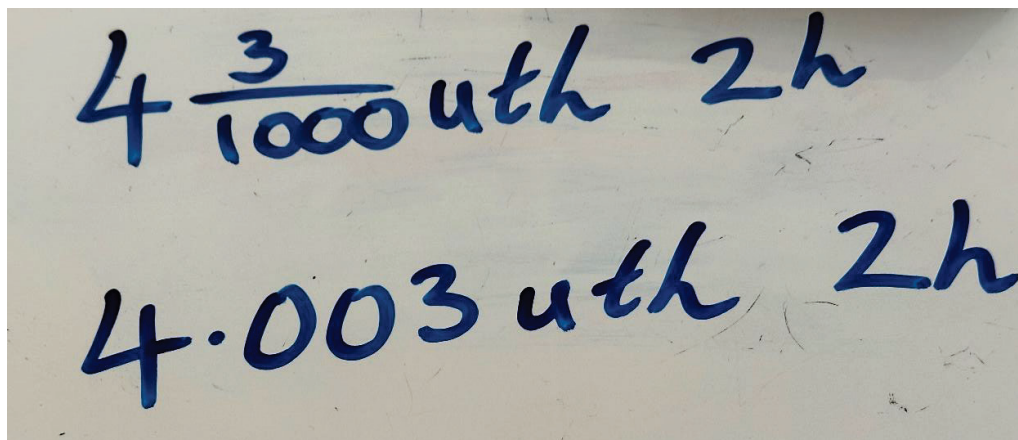 4 3/1000 uth 2h
4.003 uth 2h